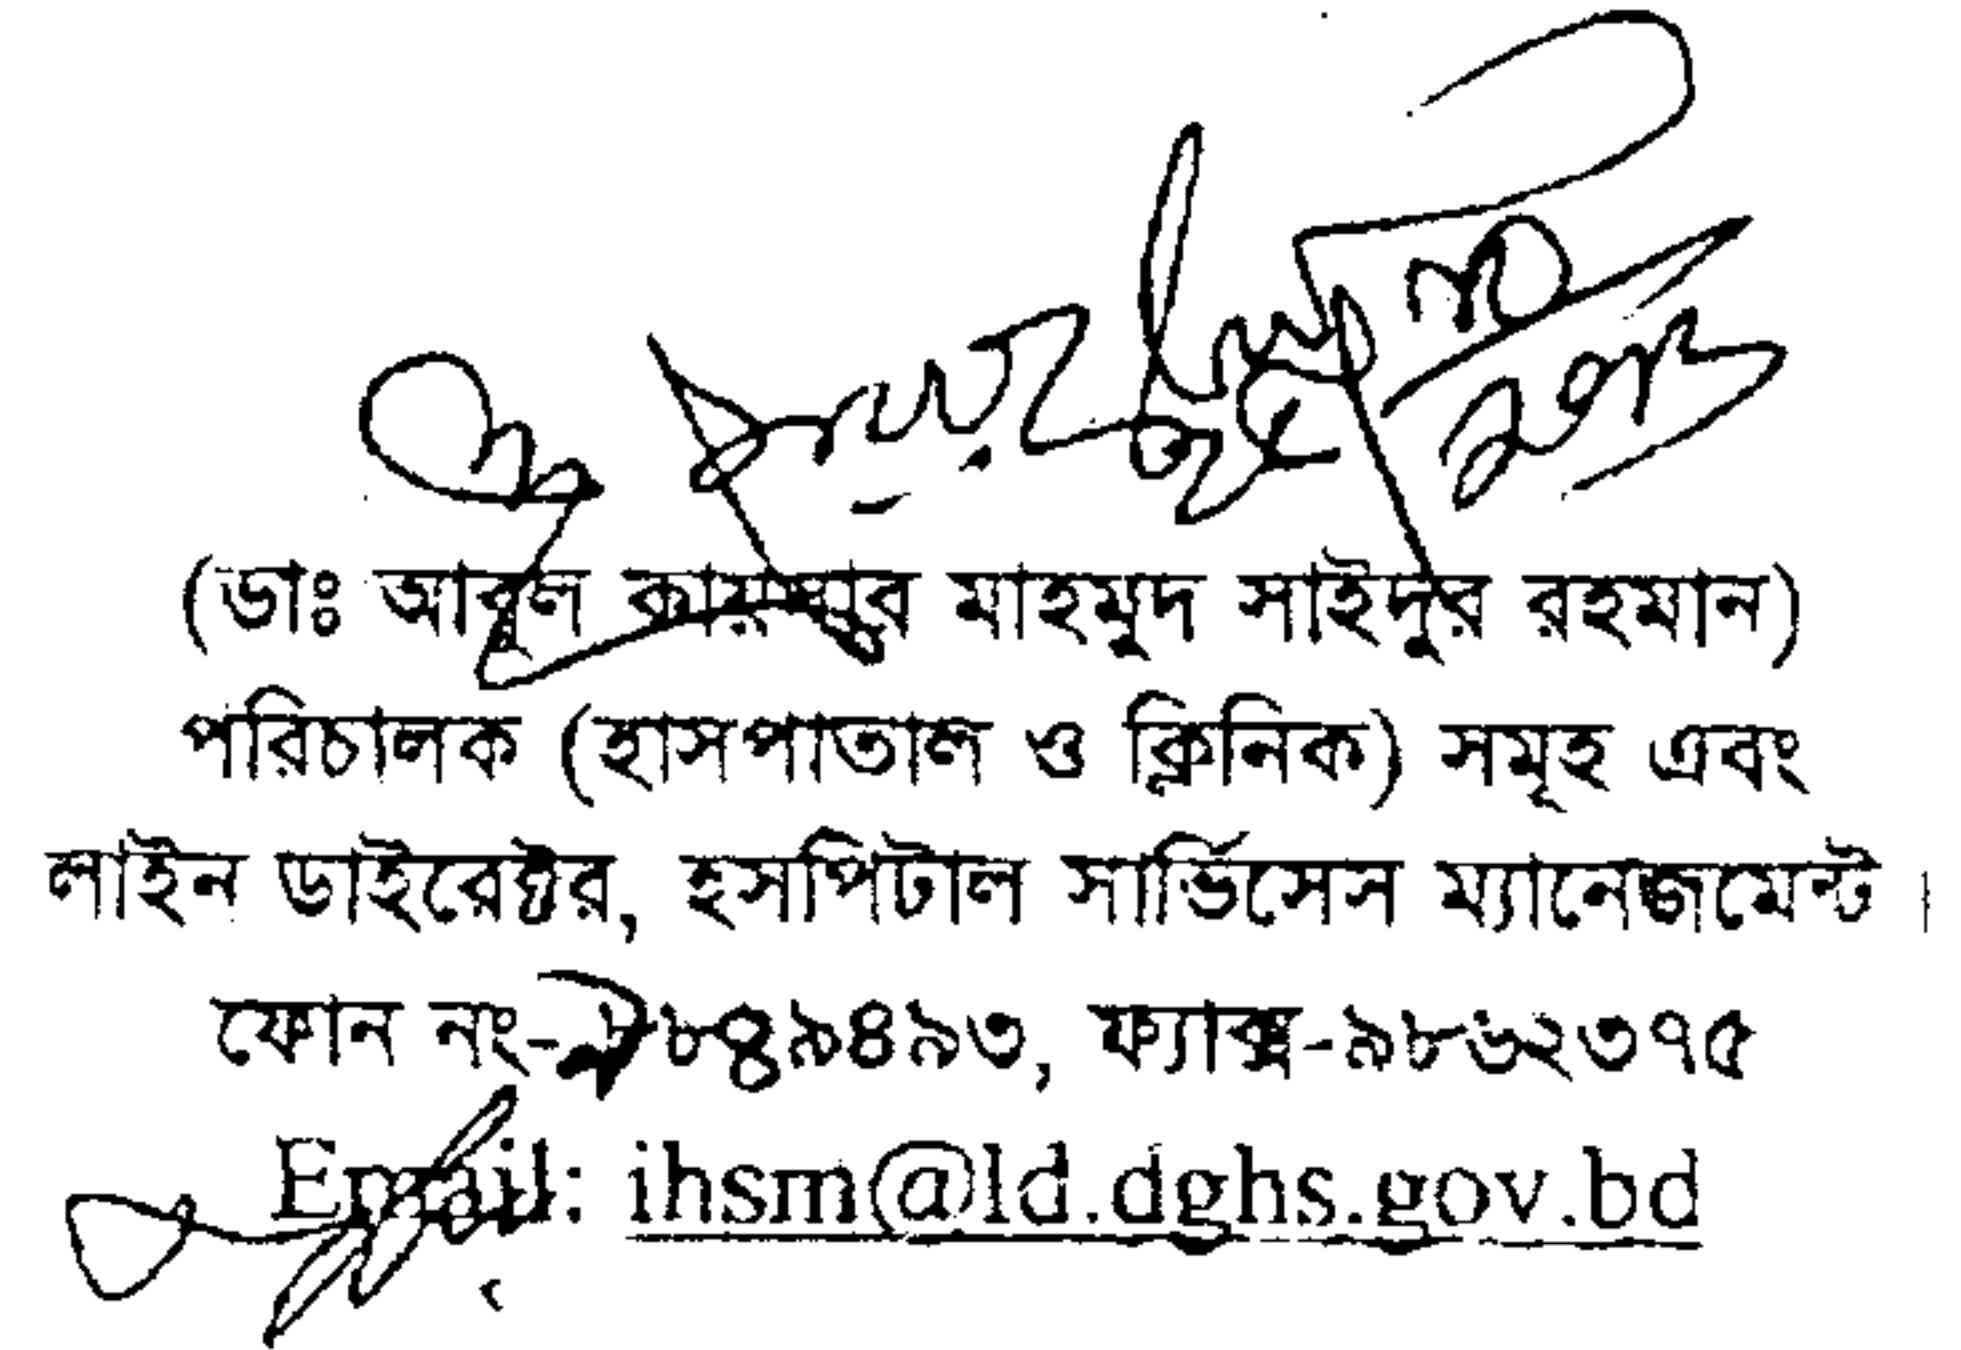 (ডাঃ আবুল কালাম মাহমুদ সাইদুর রহমান)
পরিচালক (হাসপাতাল ও ক্লিনিক) সমূহ এবং
লাইন ডাইরেক্টর, হসপিটাল সার্ভিসেস ম্যানেজমেন্ট।
ফোন নং-
ফ্যাক্স-৯৮৬২৩৭৫
Email: ihsm@ld.dghs.gov.bd